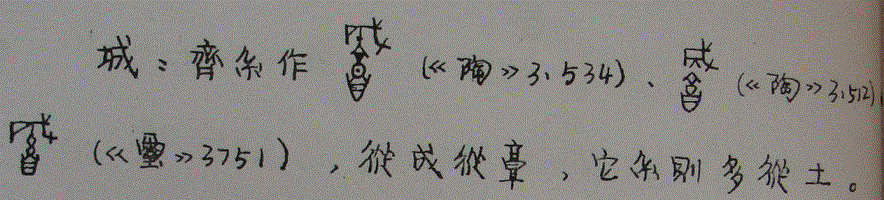 城：齊系作 (《陶》3.534)、 (《陶》3.512)、
(《璽》3751)，從成從，它系則多從土。